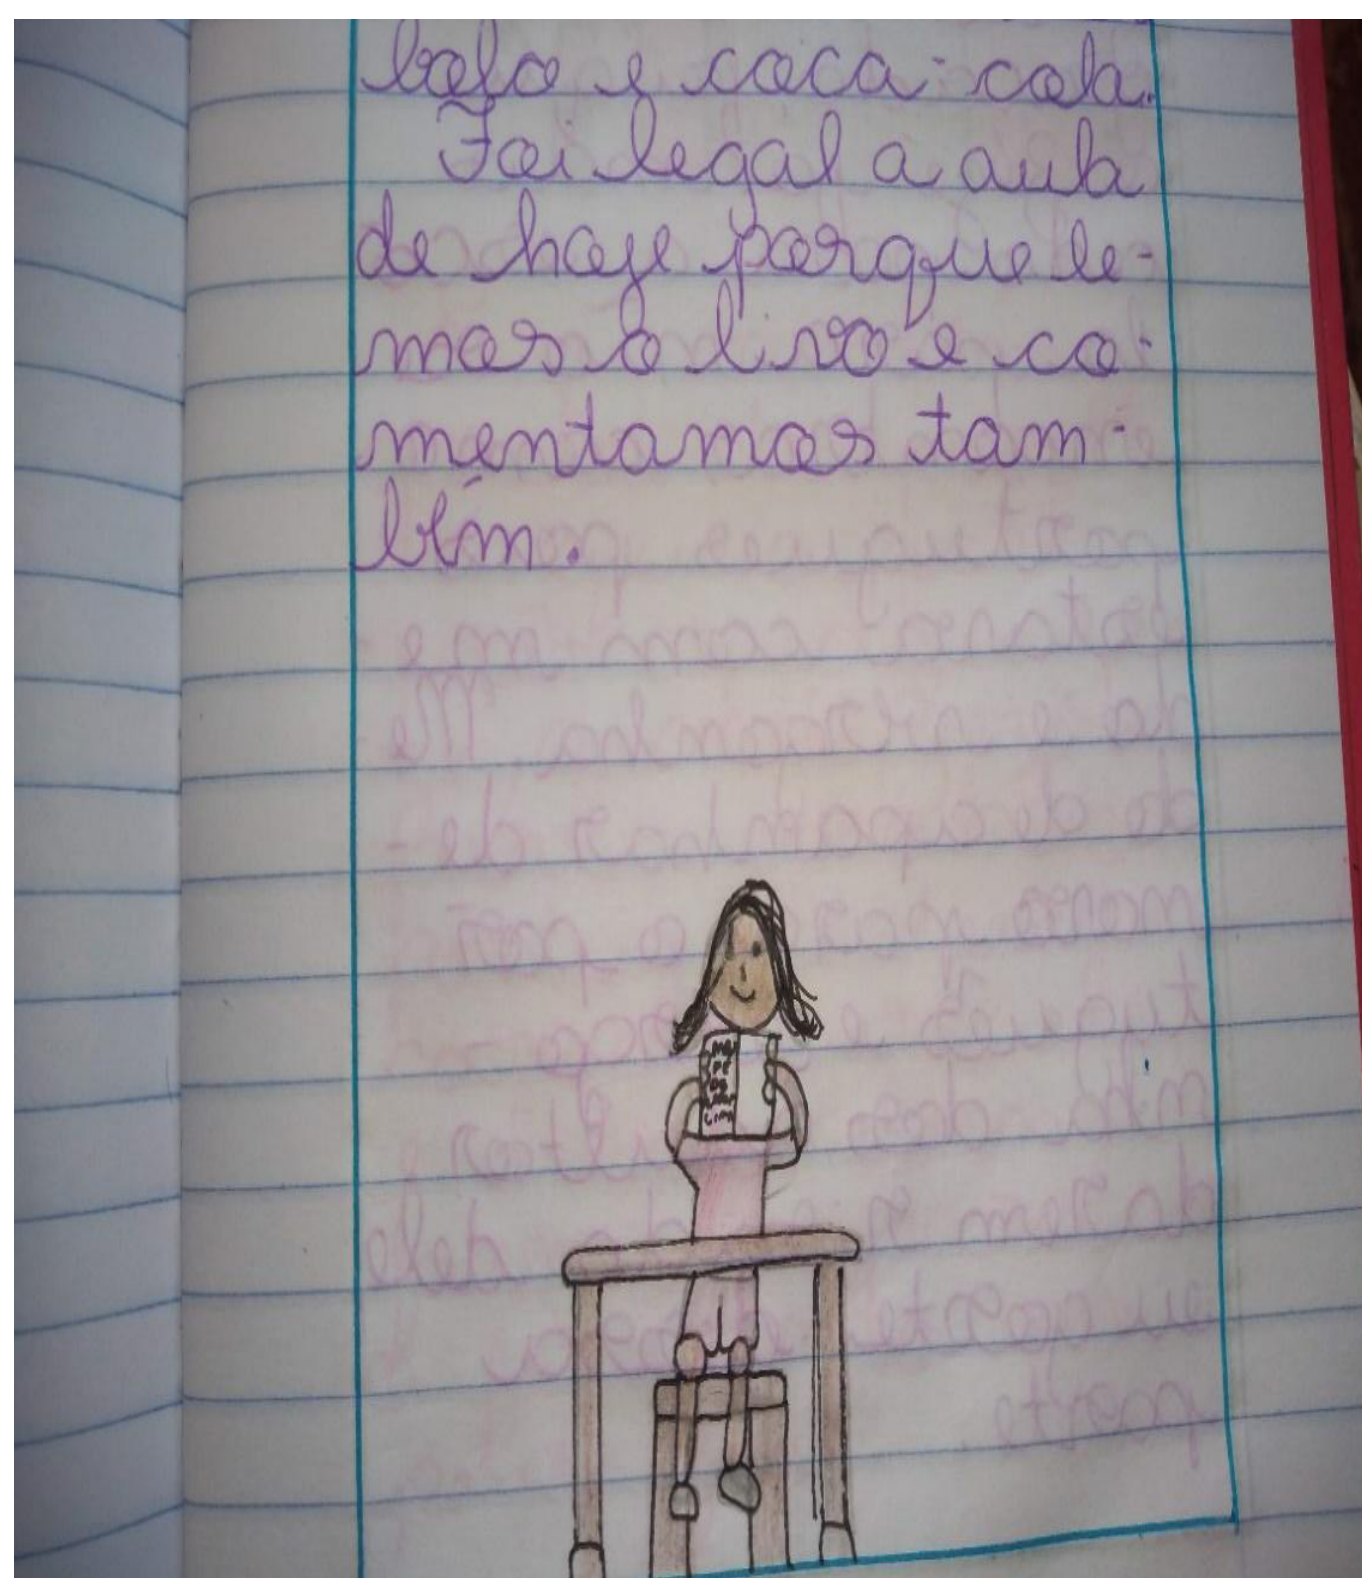 bolo e coca-cola.
Foi legal a aula
de hoje porque le-
mos o livro e co-
mentamos tam-
bém.